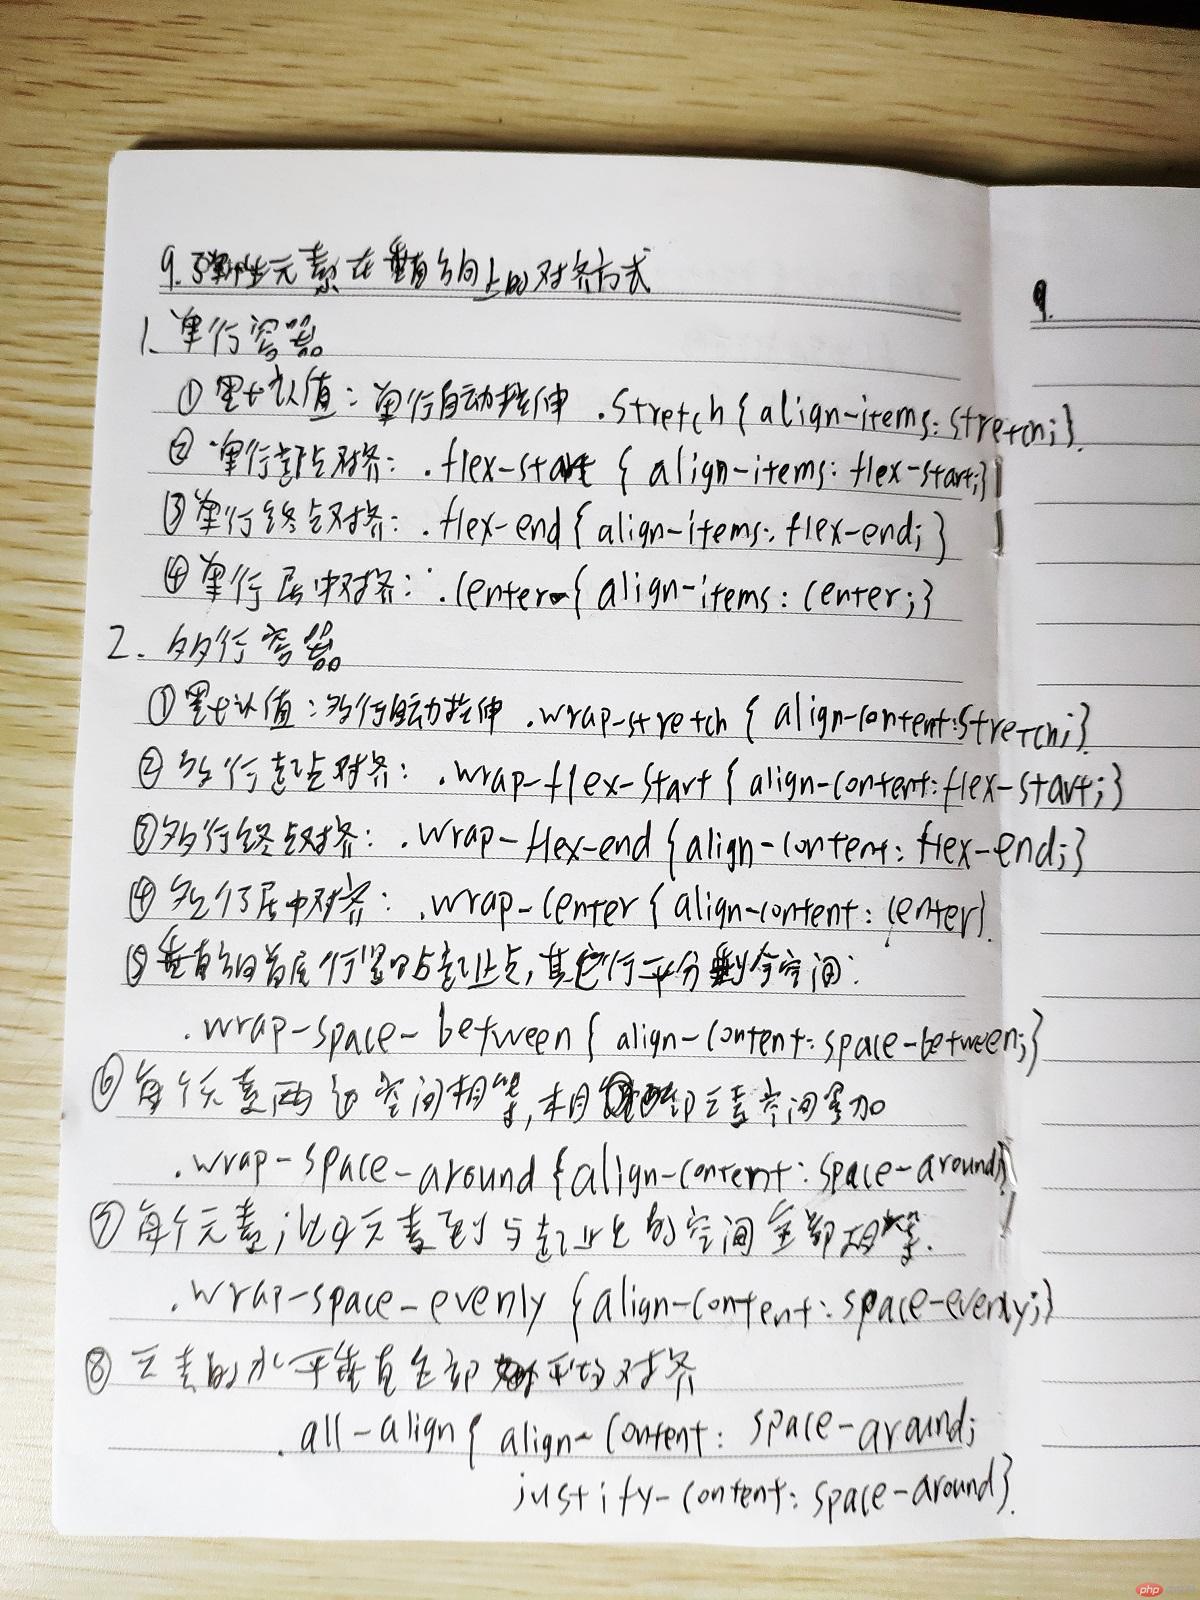 9.弹性元素在垂直方向上的对齐方式
9.
1.单行容器
①默认值：单行自动拉伸 .stretch{align-items:stretch;}
②单行起点对齐：.flex-start {align-items: flex-start;}
③单行终点对齐：.flex-end{align-items: flex-end;}
④单行居中对齐：.center{align-items: center;}
2.多行容器
①默认值：多行自动拉伸 .wrap-stretch{align-content:stretch;}
②多行起点对齐：.wrap-flex-start{align-content:flex-start;}
③多行终点对齐：.wrap-flex-end{align-content: flex-end;}
④多行居中对齐：.wrap-center{align-content: center}
⑤垂直方向首尾行紧贴起止点,其它行平分剩余空间：
.wrap-space-between{align-content: space-between;}
⑥每个元素两边空间相等,相邻元素空间累加
.wrap-space-around{align-content: space-around}
⑦每个元素,以及元素到与起止点的空间全部相等.
.wrap-space-evenly {align-content: space-evenly;}
⑧元素的水平垂直全部平均对齐
.all-align{align-content: space-around;
justify-content: space-around}
php